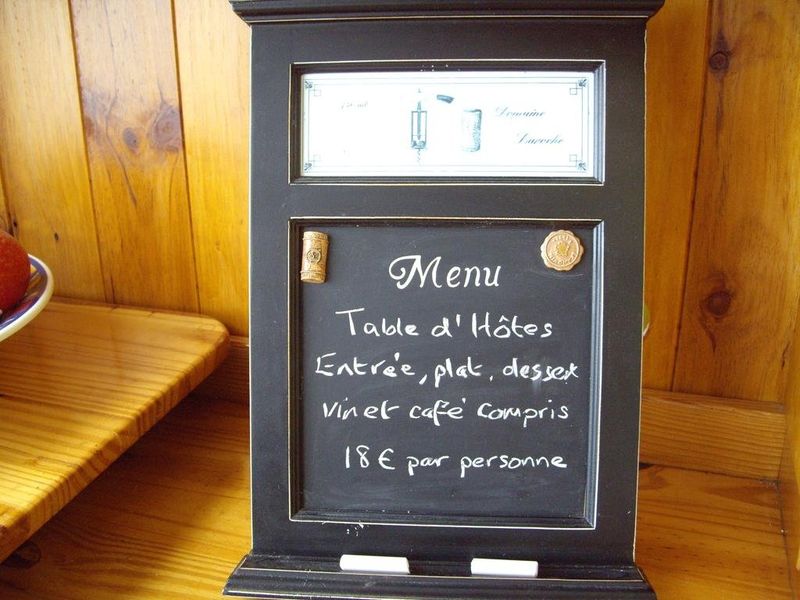 750 ml
Domaine
Laroche
Menu
Table d'Hôtes
Entrée, plat, dessert
vin et café compris
18 € par personne